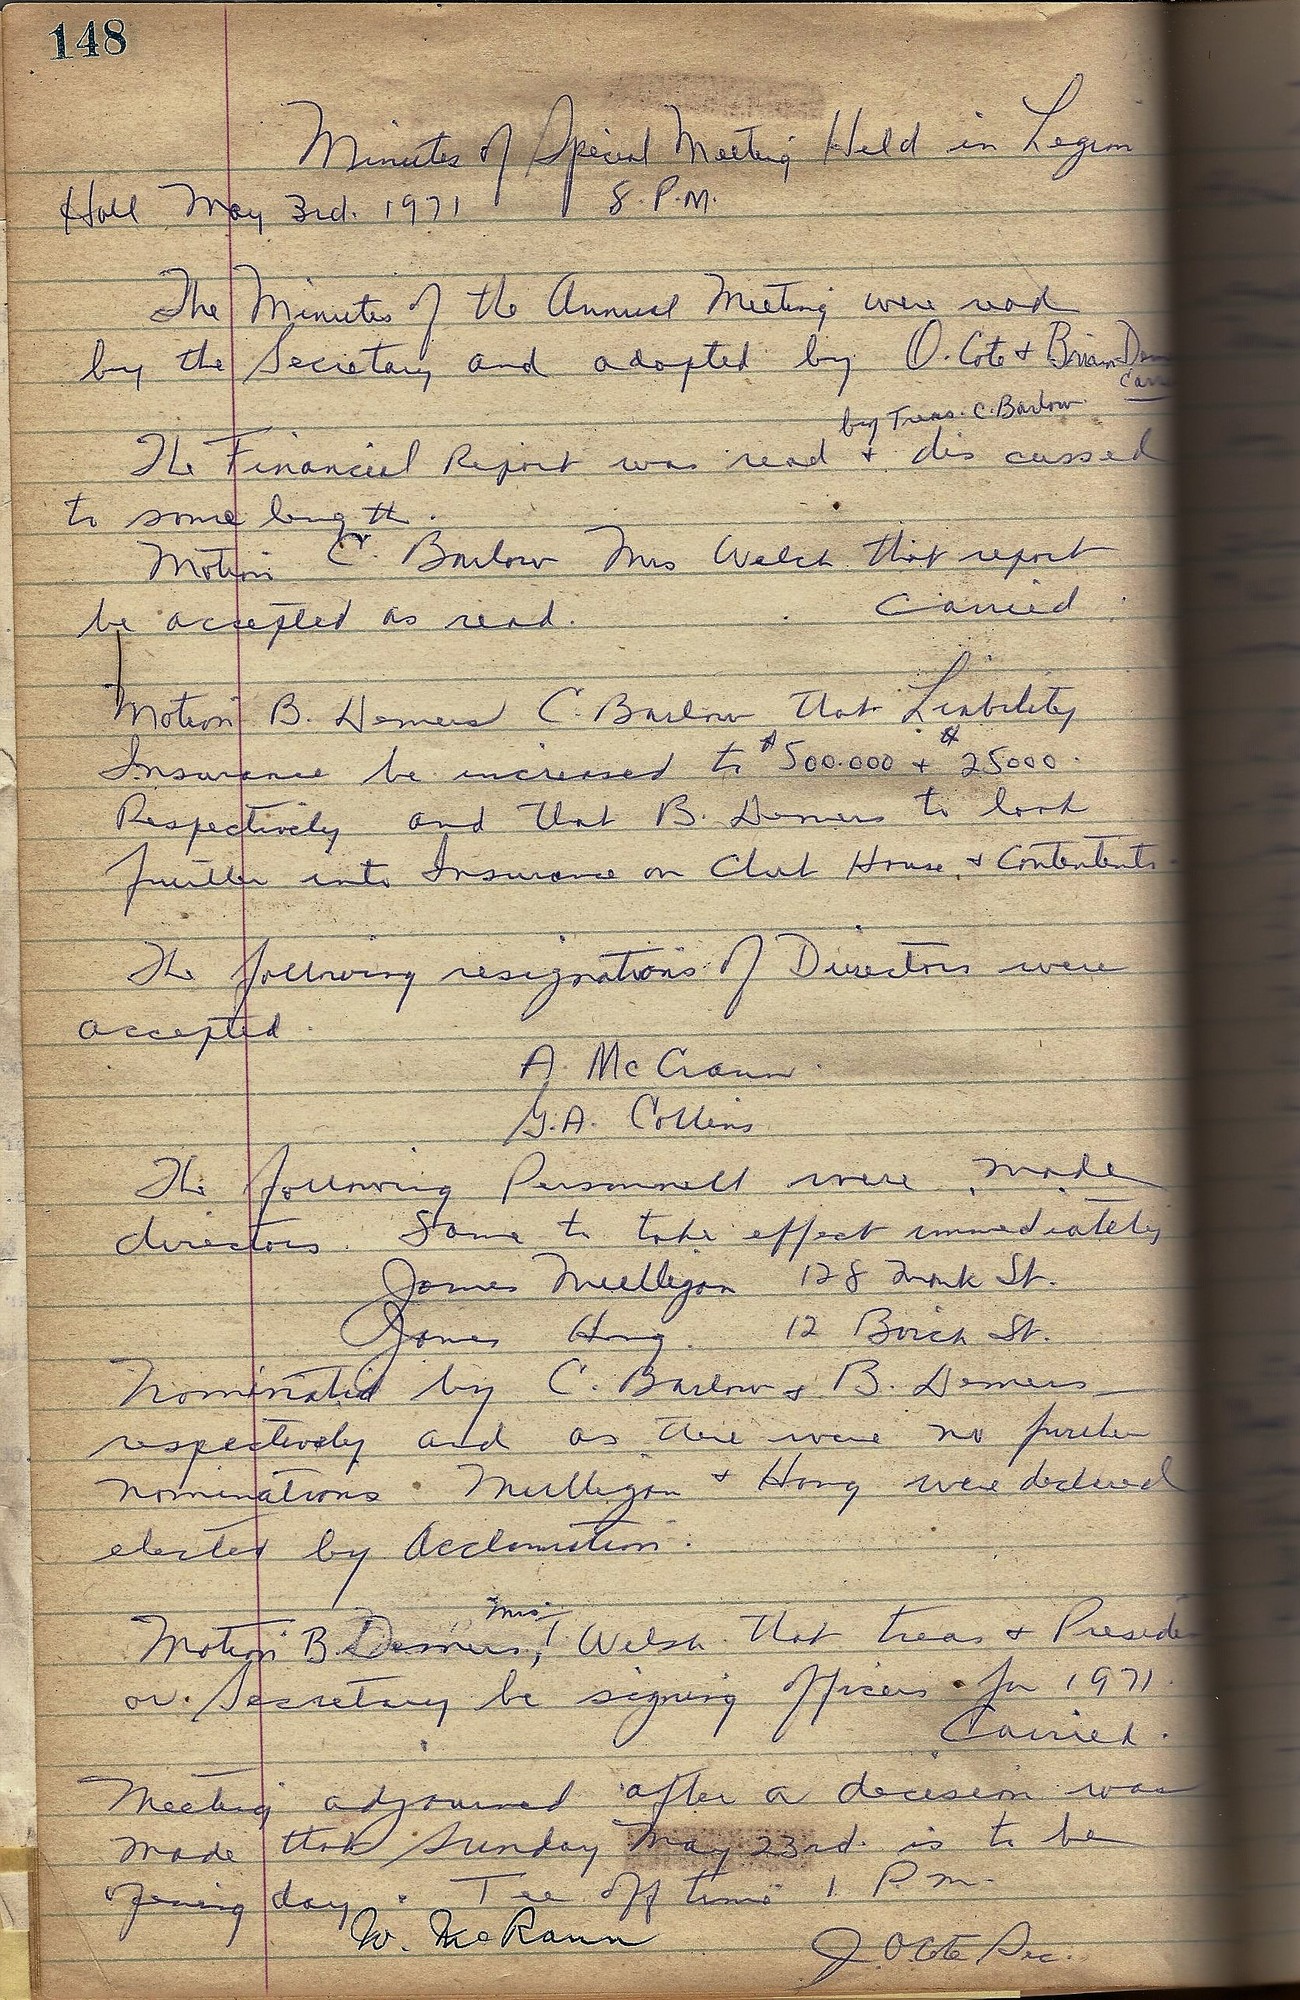 148
Minutes of Special Meeting Held in Legion
Hall May 3rd. 1971 8 P.M.
The Minutes of the Annual Meeting were read
by the Secretary and adopted by O. Cote & Brian
by Treas. C. Barlow
The Financial Report was read & discussed
to some length.
Motion C. Barlow Mrs Welch that report
be accepted as read. Carried.
Motion B. Demers C. Barlow that Liability
Insurance be increased to $500.000 & $25000.
Respectively and that B. Demers to look
further into Insurance on Club House & Contentents.
The following resignations of Directors were
accepted.
A. McCrann.
G.A. Collins
The following Personnell were made
directors. Same to take effect immediately
James Mulligan 128 Monk St.
James Hong 12 Birch St.
Nominated by C. Barlow & B. Demers
respectively and as there were no further
nominations Mulligan & Hong were declared
elected by Acclamation.
Mrs.
Motion B. Demers, Welsh that treas & Presiden
or Secretary be signing officers for 1971.
Carried.
Meeting adjourned after a decision was
made that Sunday May 23rd. is to be
opening day. Tee off time 1 P.m.
W. McRann
J O Cote Sec.